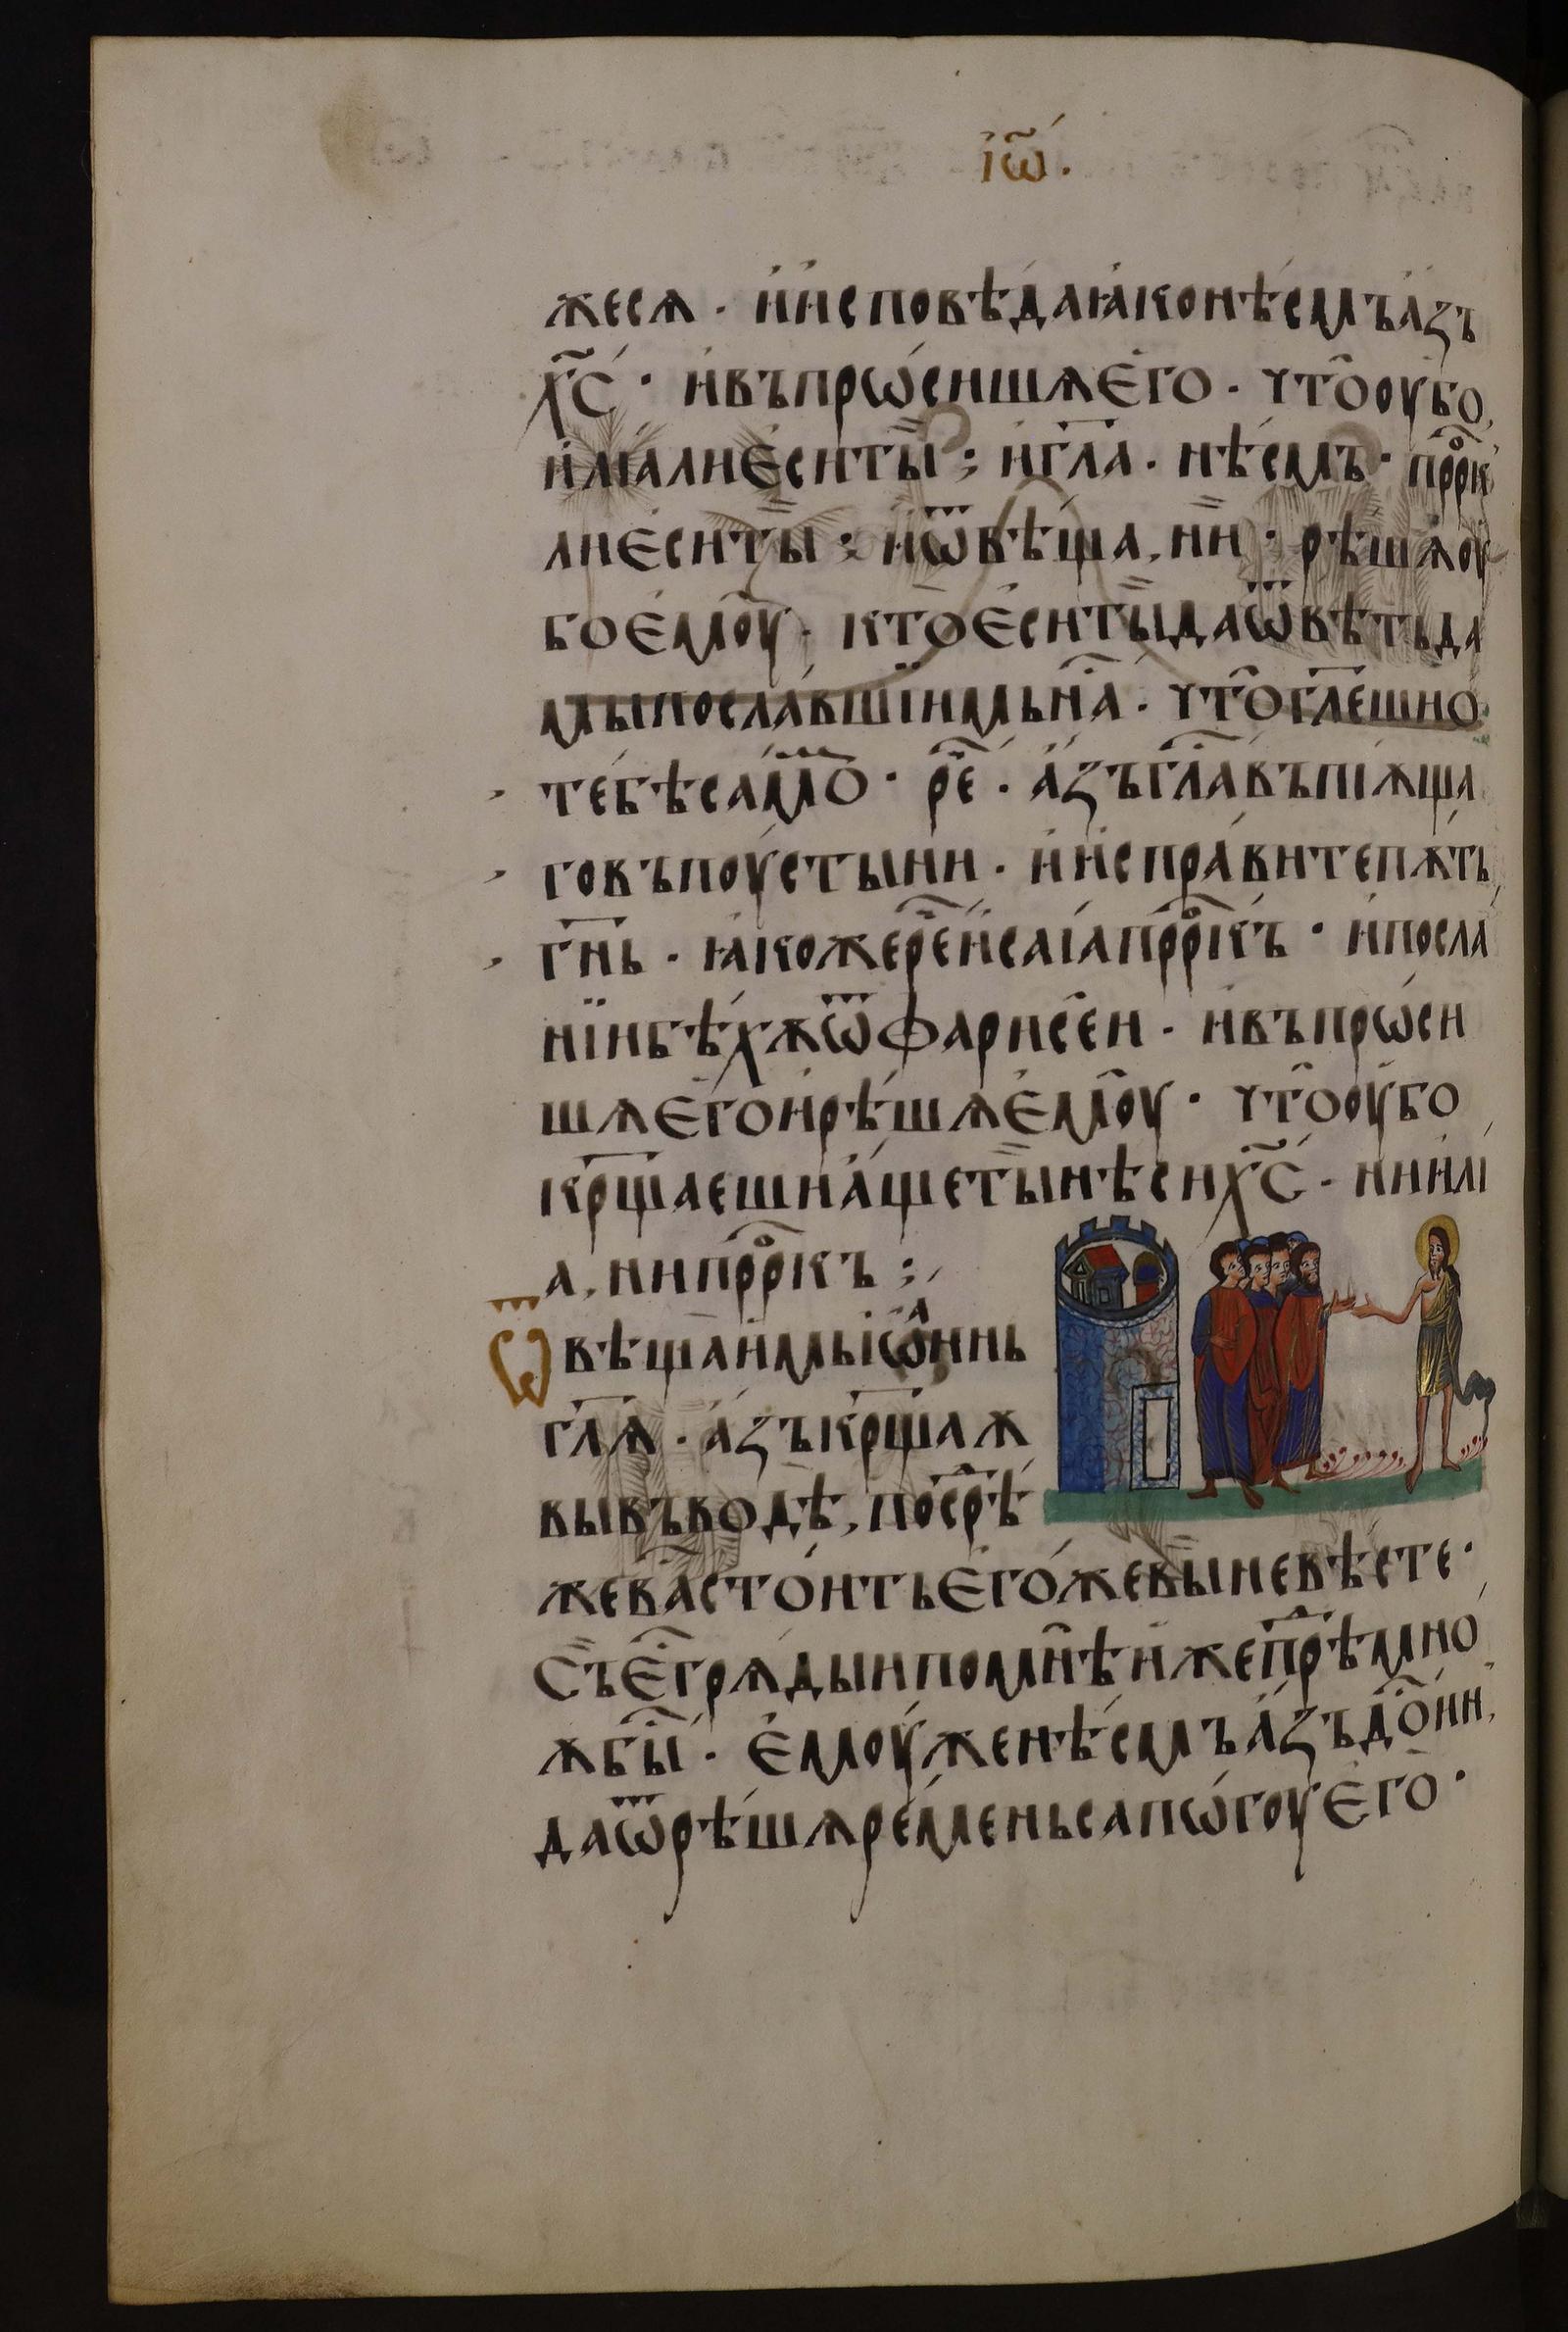 і҆ѡ҃.
жесѧ · и҆и҆сповѣ́да ꙗ҆конѣ́смъ а҆́зъ
х҃с · и҆въпрѡ́сишѧ є҆го · что̑ оубо
и҆лїа лиє҆́ситы̏ ; и҆гл҃а · нѣ́смъ · прⷪ҇рк
лиє҆ситы̏ : и҆ѿвѣща, ни · рѣшѧ оу
боє҆моу · кто̑ є҆́ситы̏ даѿвѣ́тьда
мы пославшїимьн̑а · что̑ гл҃еши о
те́бѣ само · ре҇ · а҆́зъ гл҃а въпїѫща
го въпоу́стыни · и҆и҆спра́витепѫ́ть
гн҃ь · ꙗ҆кожере҇ и҆саїа прⷪ҇ркъ · и҆посла
нїи бѣ́хѫ ѿ фарисе́и · и҆въпрѡ́си
шѧ є҆го и҆рѣ́шѧ є҆моу · что̑ оу҆бо
кр҃щаеши а҆́щеты̏ нѣси х҃с · ни и҆лі
а, нипрⷪ҇ркъ ;
Ѿвѣща и҆мь і҆ѡⷶ҇ннь
гл҃ѧ · а҆́зъ кр҃щаѫ
вы въ водѣ, поср҇ѣ́
жева́стои́ть є҆го́жевы̏ невѣ́сте ·
Съ є҆҇ грѧдыи помн̑ѣ и҆жепр҇ѣмно́
ѫ бы҇ · є҆моу́женѣ́смъ а҆́зъ до҇и́н,
даѿрѣ́шѫ ре́меньсапѡ́гоу є҆го ·